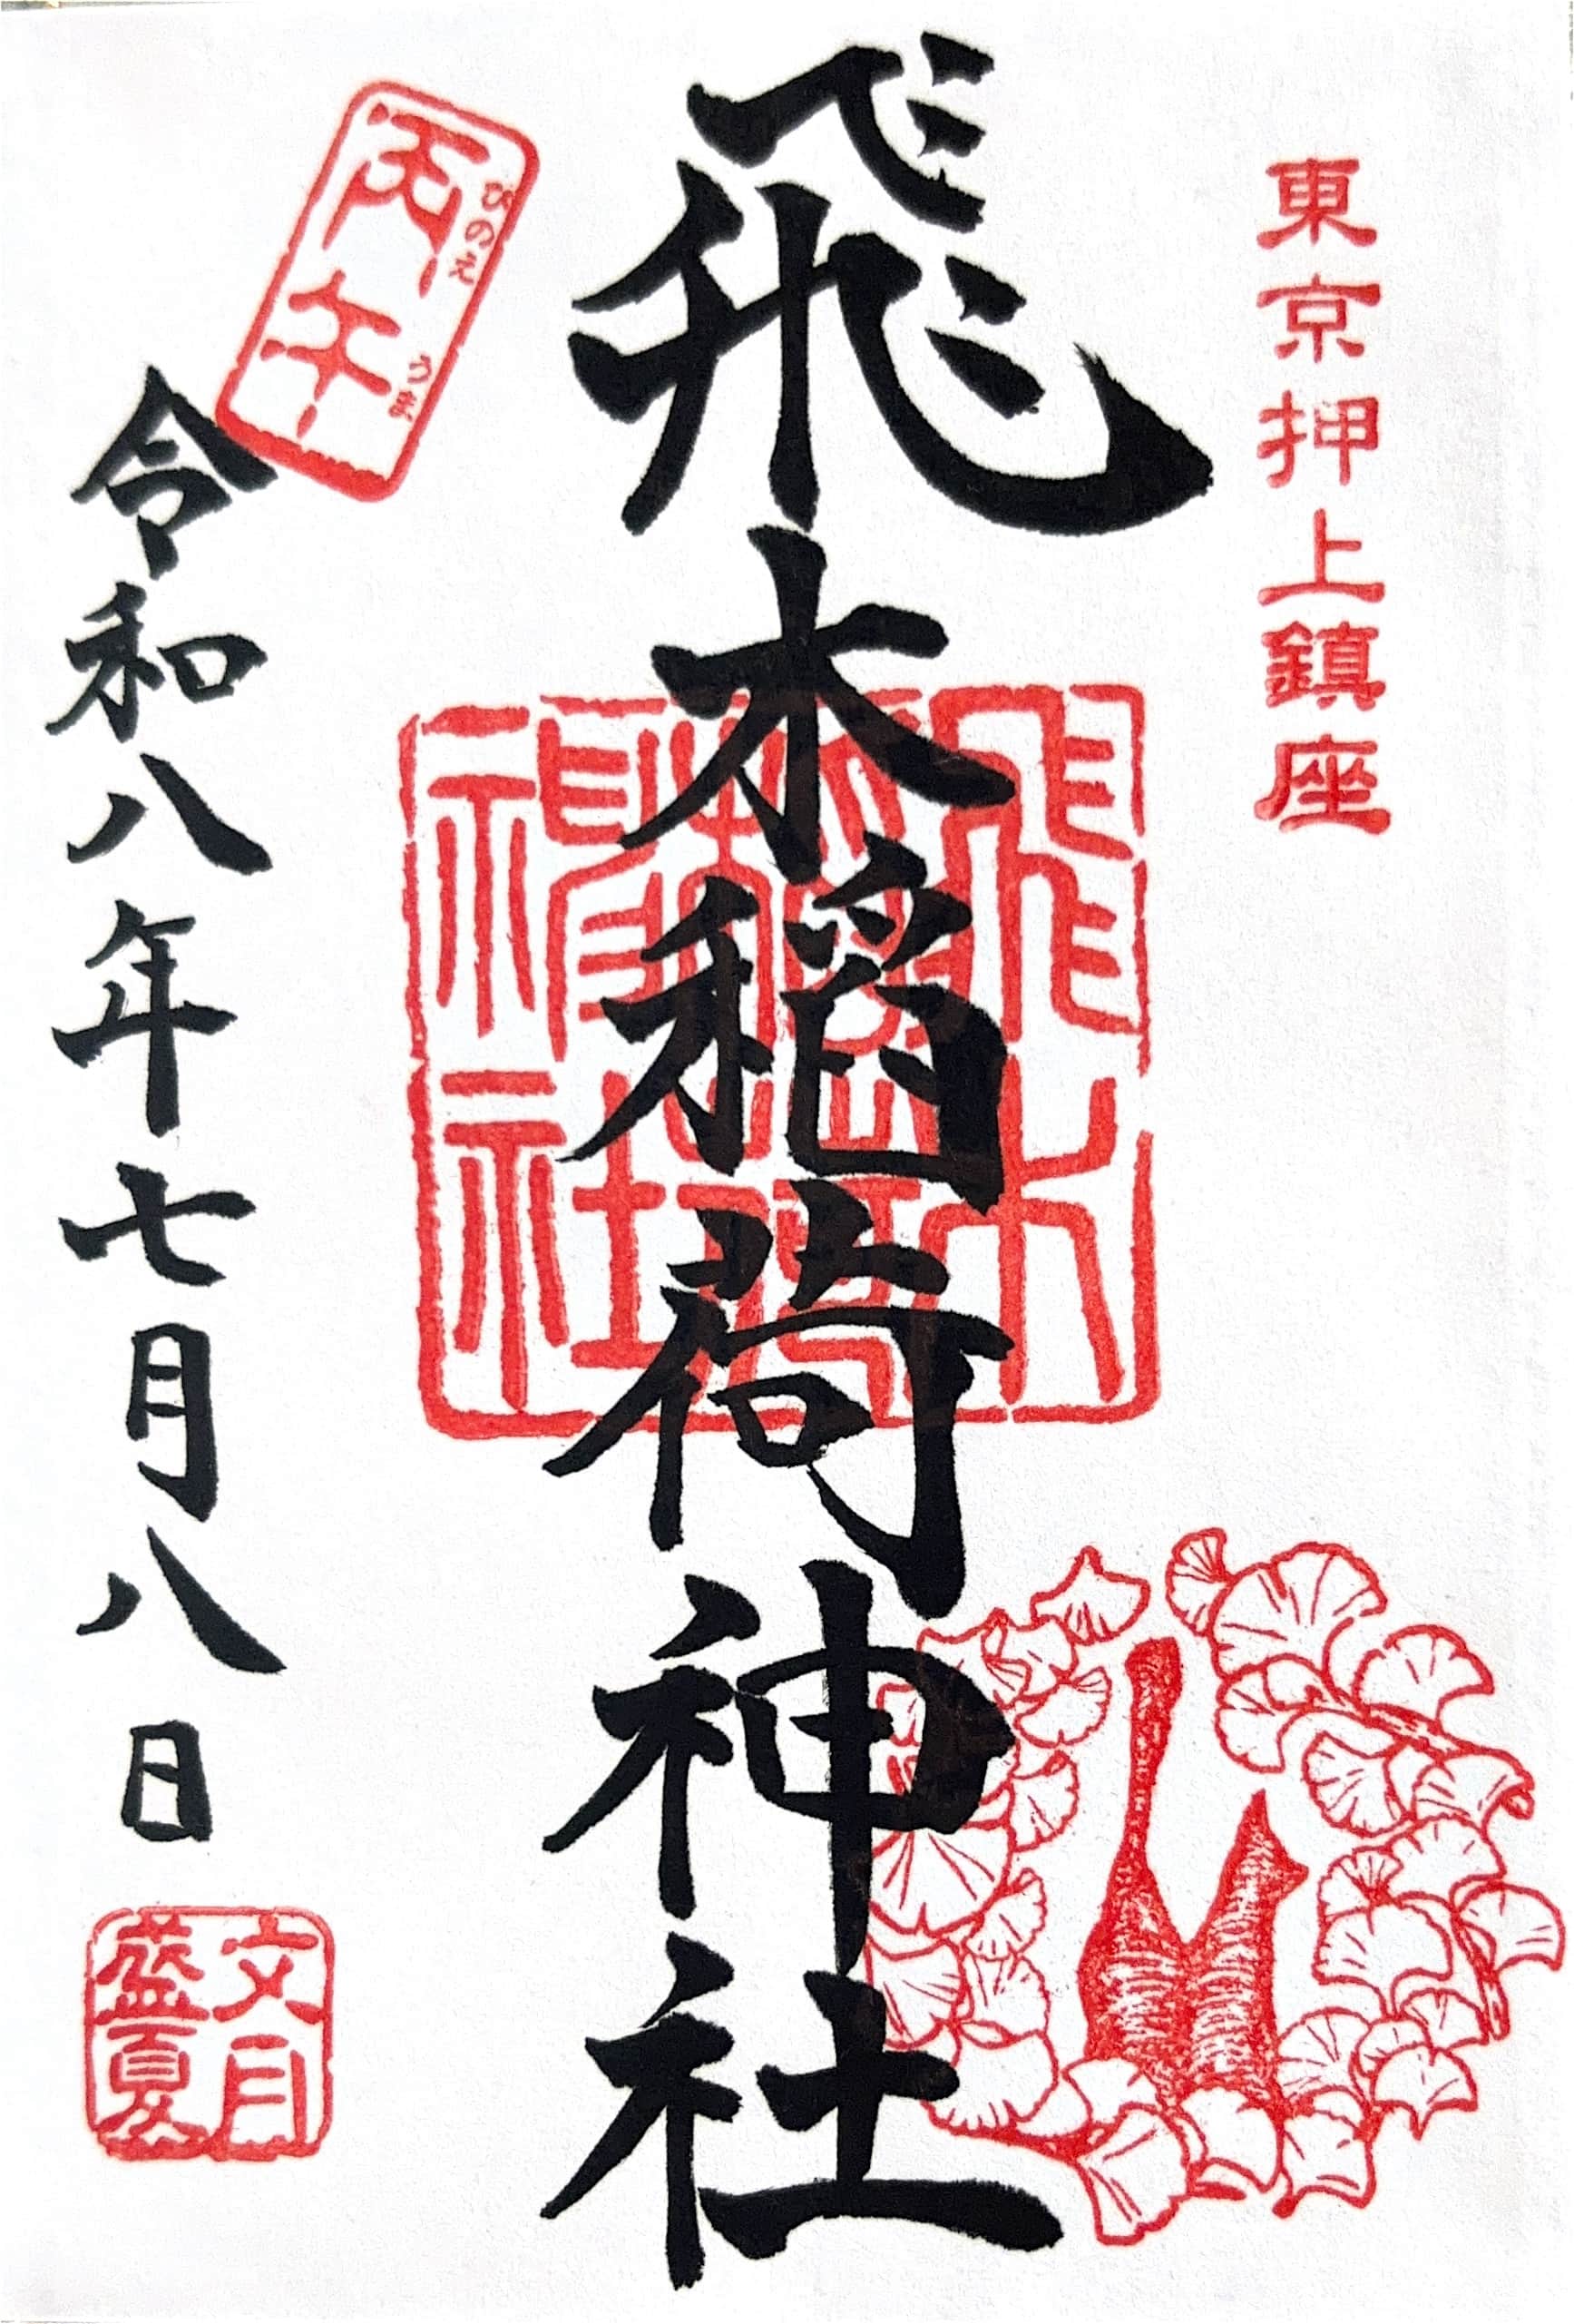 東京押上鎮座
飛木稲荷神社
飛木
稲荷
神社
丙午
ひのえ うま
令和八年七月八日
文月
盛夏